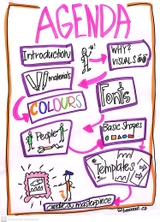 AGENDA
Introduction
WHY?
VISUALS
materials
COLOURS
Fonts
People
Basic Shapes
Templates
create a masterpiece